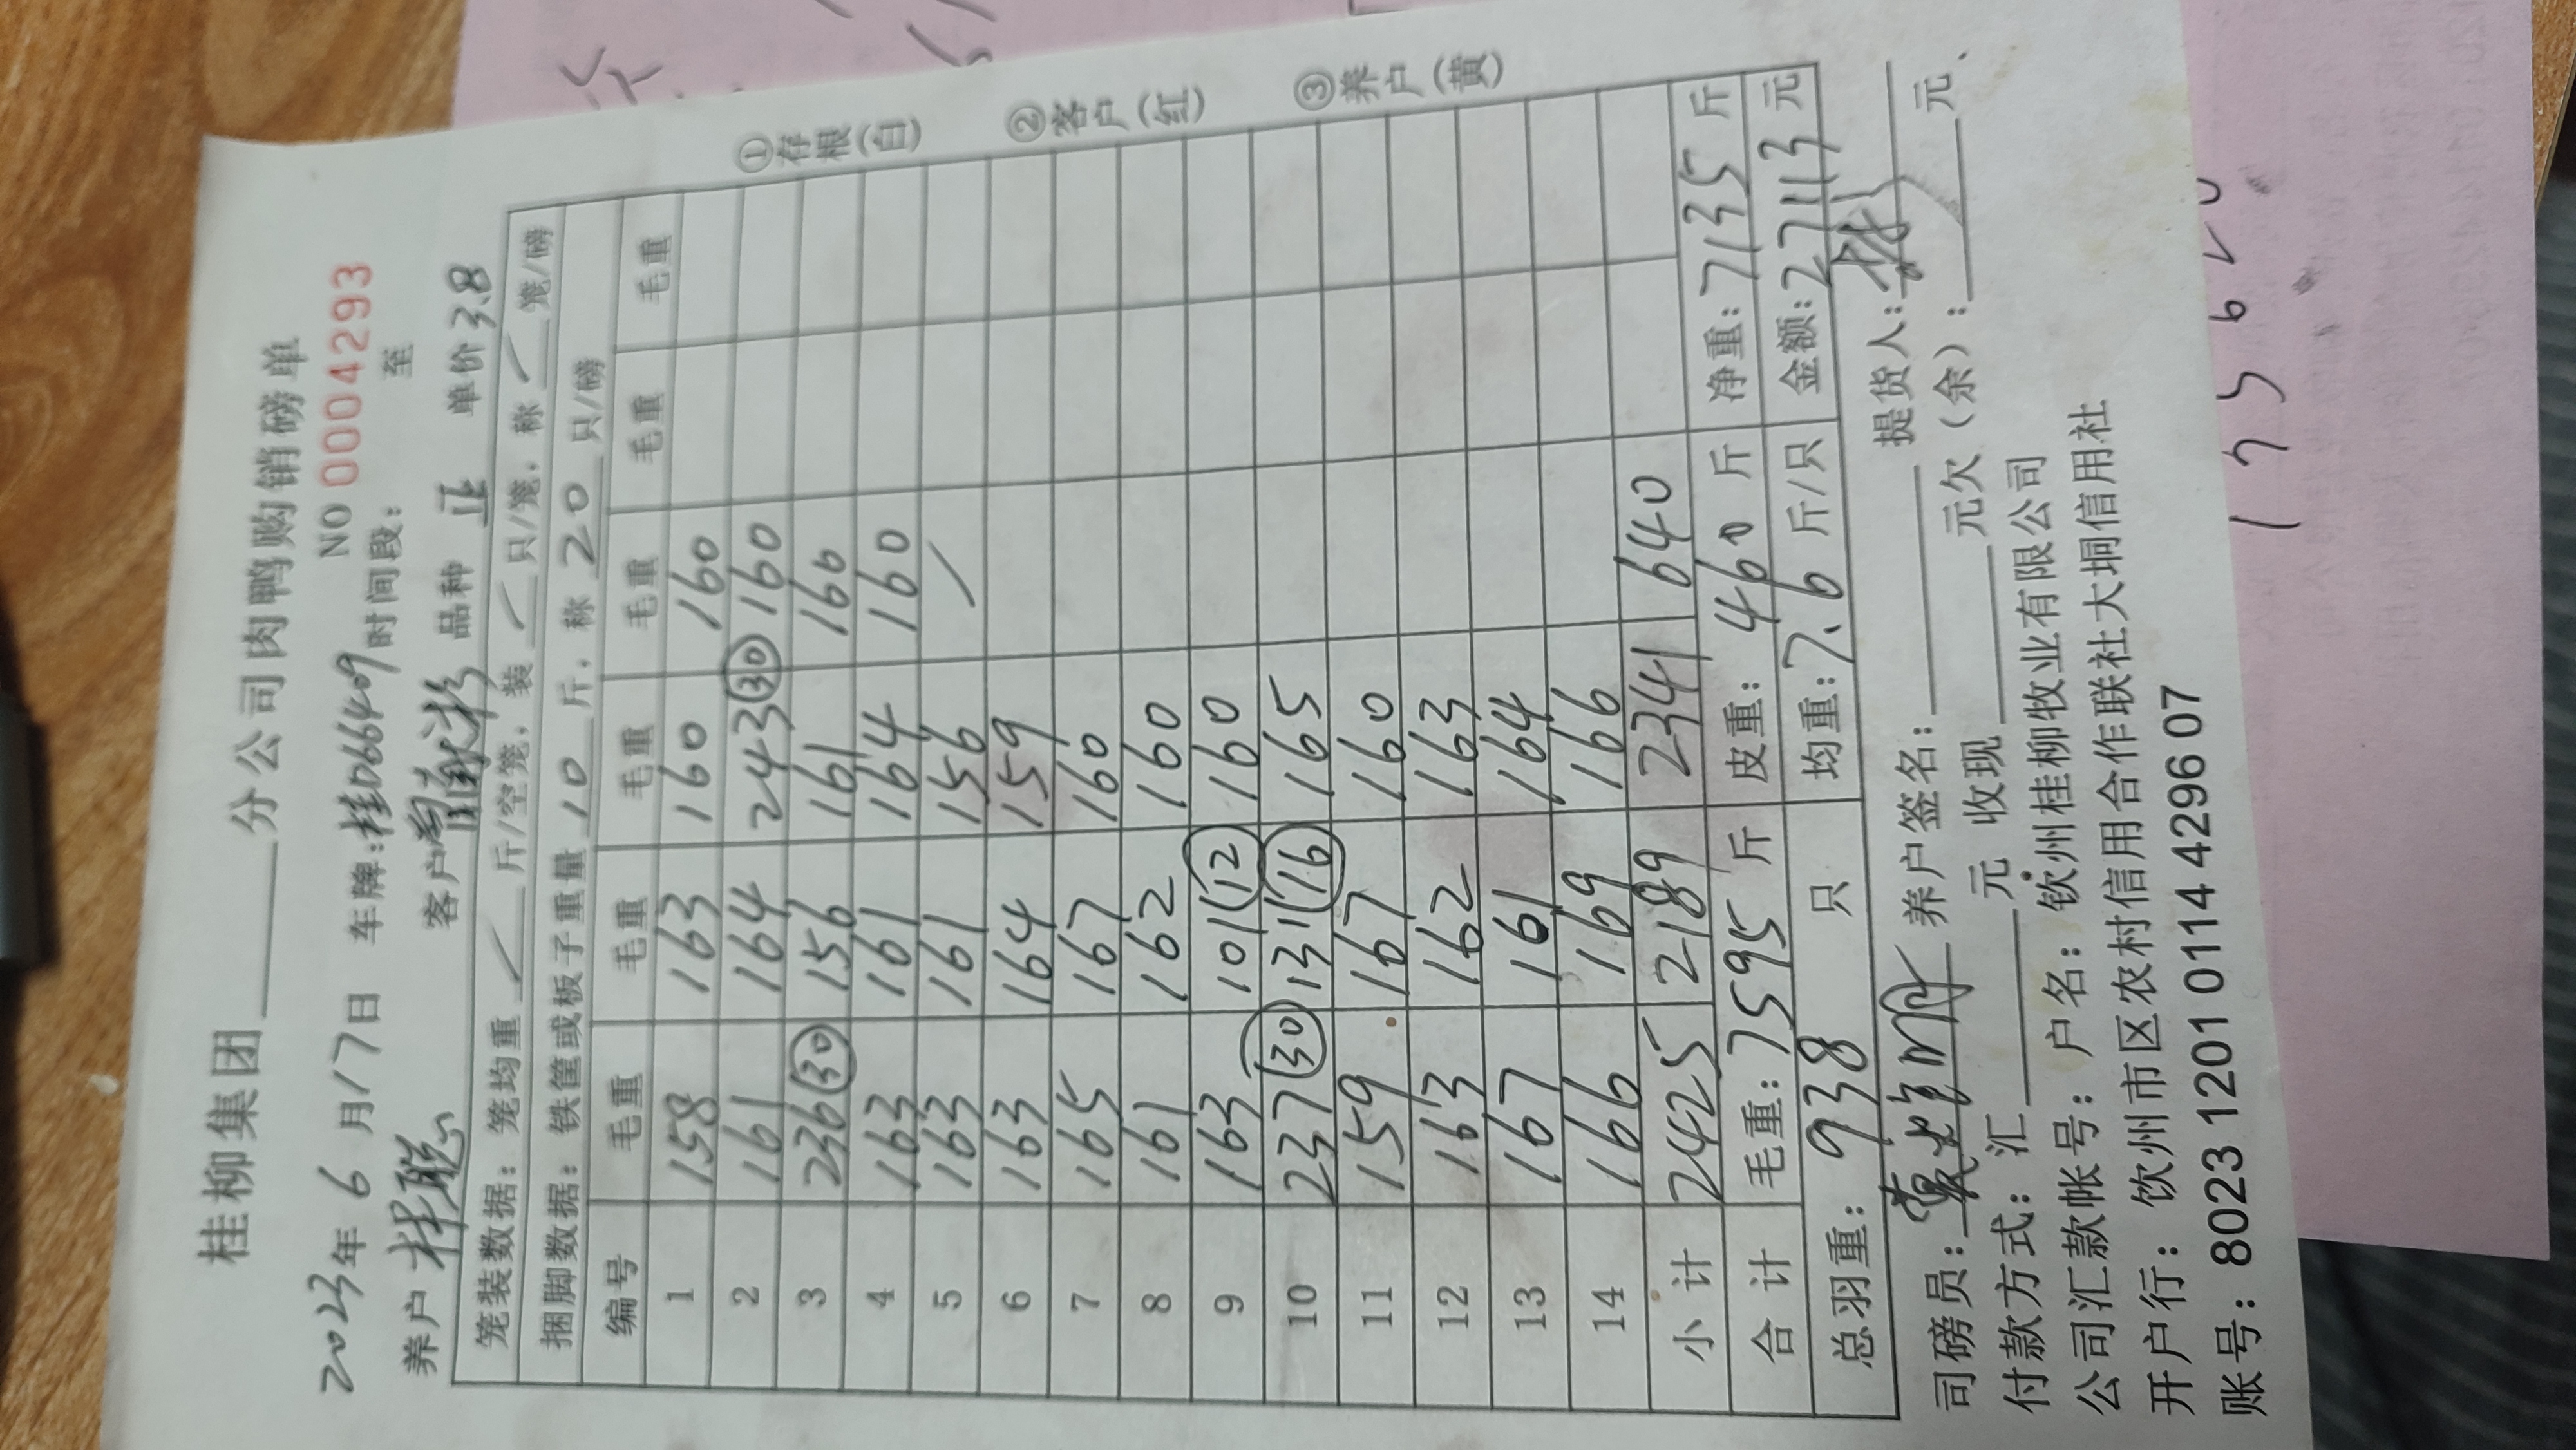 桂柳集团 分公司肉鸭购销磅单
NO 00004293
2023年 6 月 17 日 车牌:桂D66409 时间段: 至
养户 客户 品种 正 单价 3.8
笼装数据: 笼均重 斤/空笼, 装 只/笼, 称 笼/磅
捆脚数据: 铁筐或板子重量 10 斤, 称 20 只/磅
编号 毛重 毛重 毛重 毛重 毛重 毛重
1 158 163 160 160
2 161 164 243(30) 160
3 236(30) 156 161 160
4 163 161 164 160
5 163 161 156 /
6 163 164 159
7 165 167 160
8 161 162 160
9 163 101(12) 160
10 237(30) 131(16) 165
11 159 167 160
12 163 162 163
13 167 161 164
14 166 169 166
小计 2425 2189 2341 640
合计 毛重: 7595 斤 皮重: 460 斤 净重: 7135 斤
总羽重: 938 只 均重: 7.6 斤/只 金额: 27113 元
①存根(白) ②客户(红) ③养户(黄)
司磅员: 养户签名: 提货人:
付款方式: 汇 元 收现 元欠(余): 元、
公司汇款帐号: 户名: 钦州桂柳牧业有限公司
开户行: 钦州市区农村信用合作联社大垌信用社
账号: 8023 1201 0114 4296 07